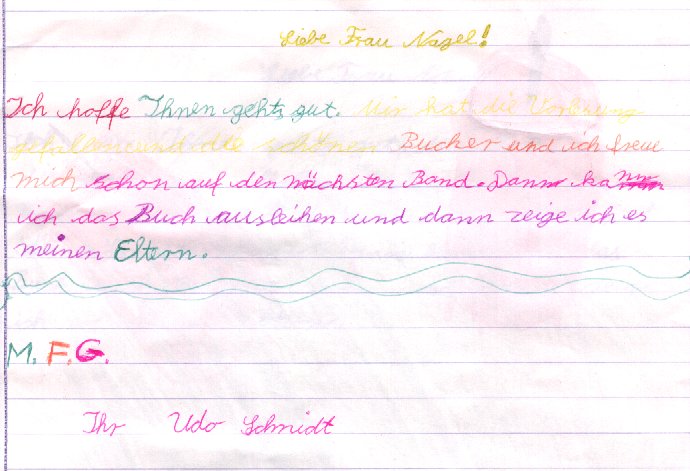 Liebe Frau Nagel!
Ich hoffe Ihnen gehts gut. Mir hat die Vorlesung
gefallen und die schönen Bücher und ich freue
mich schon auf den nächsten Band. Dann ka
ich das Buch ausleihen und dann zeige ich es
meinen Eltern.
M. F. G.
Ihr Udo Schmidt